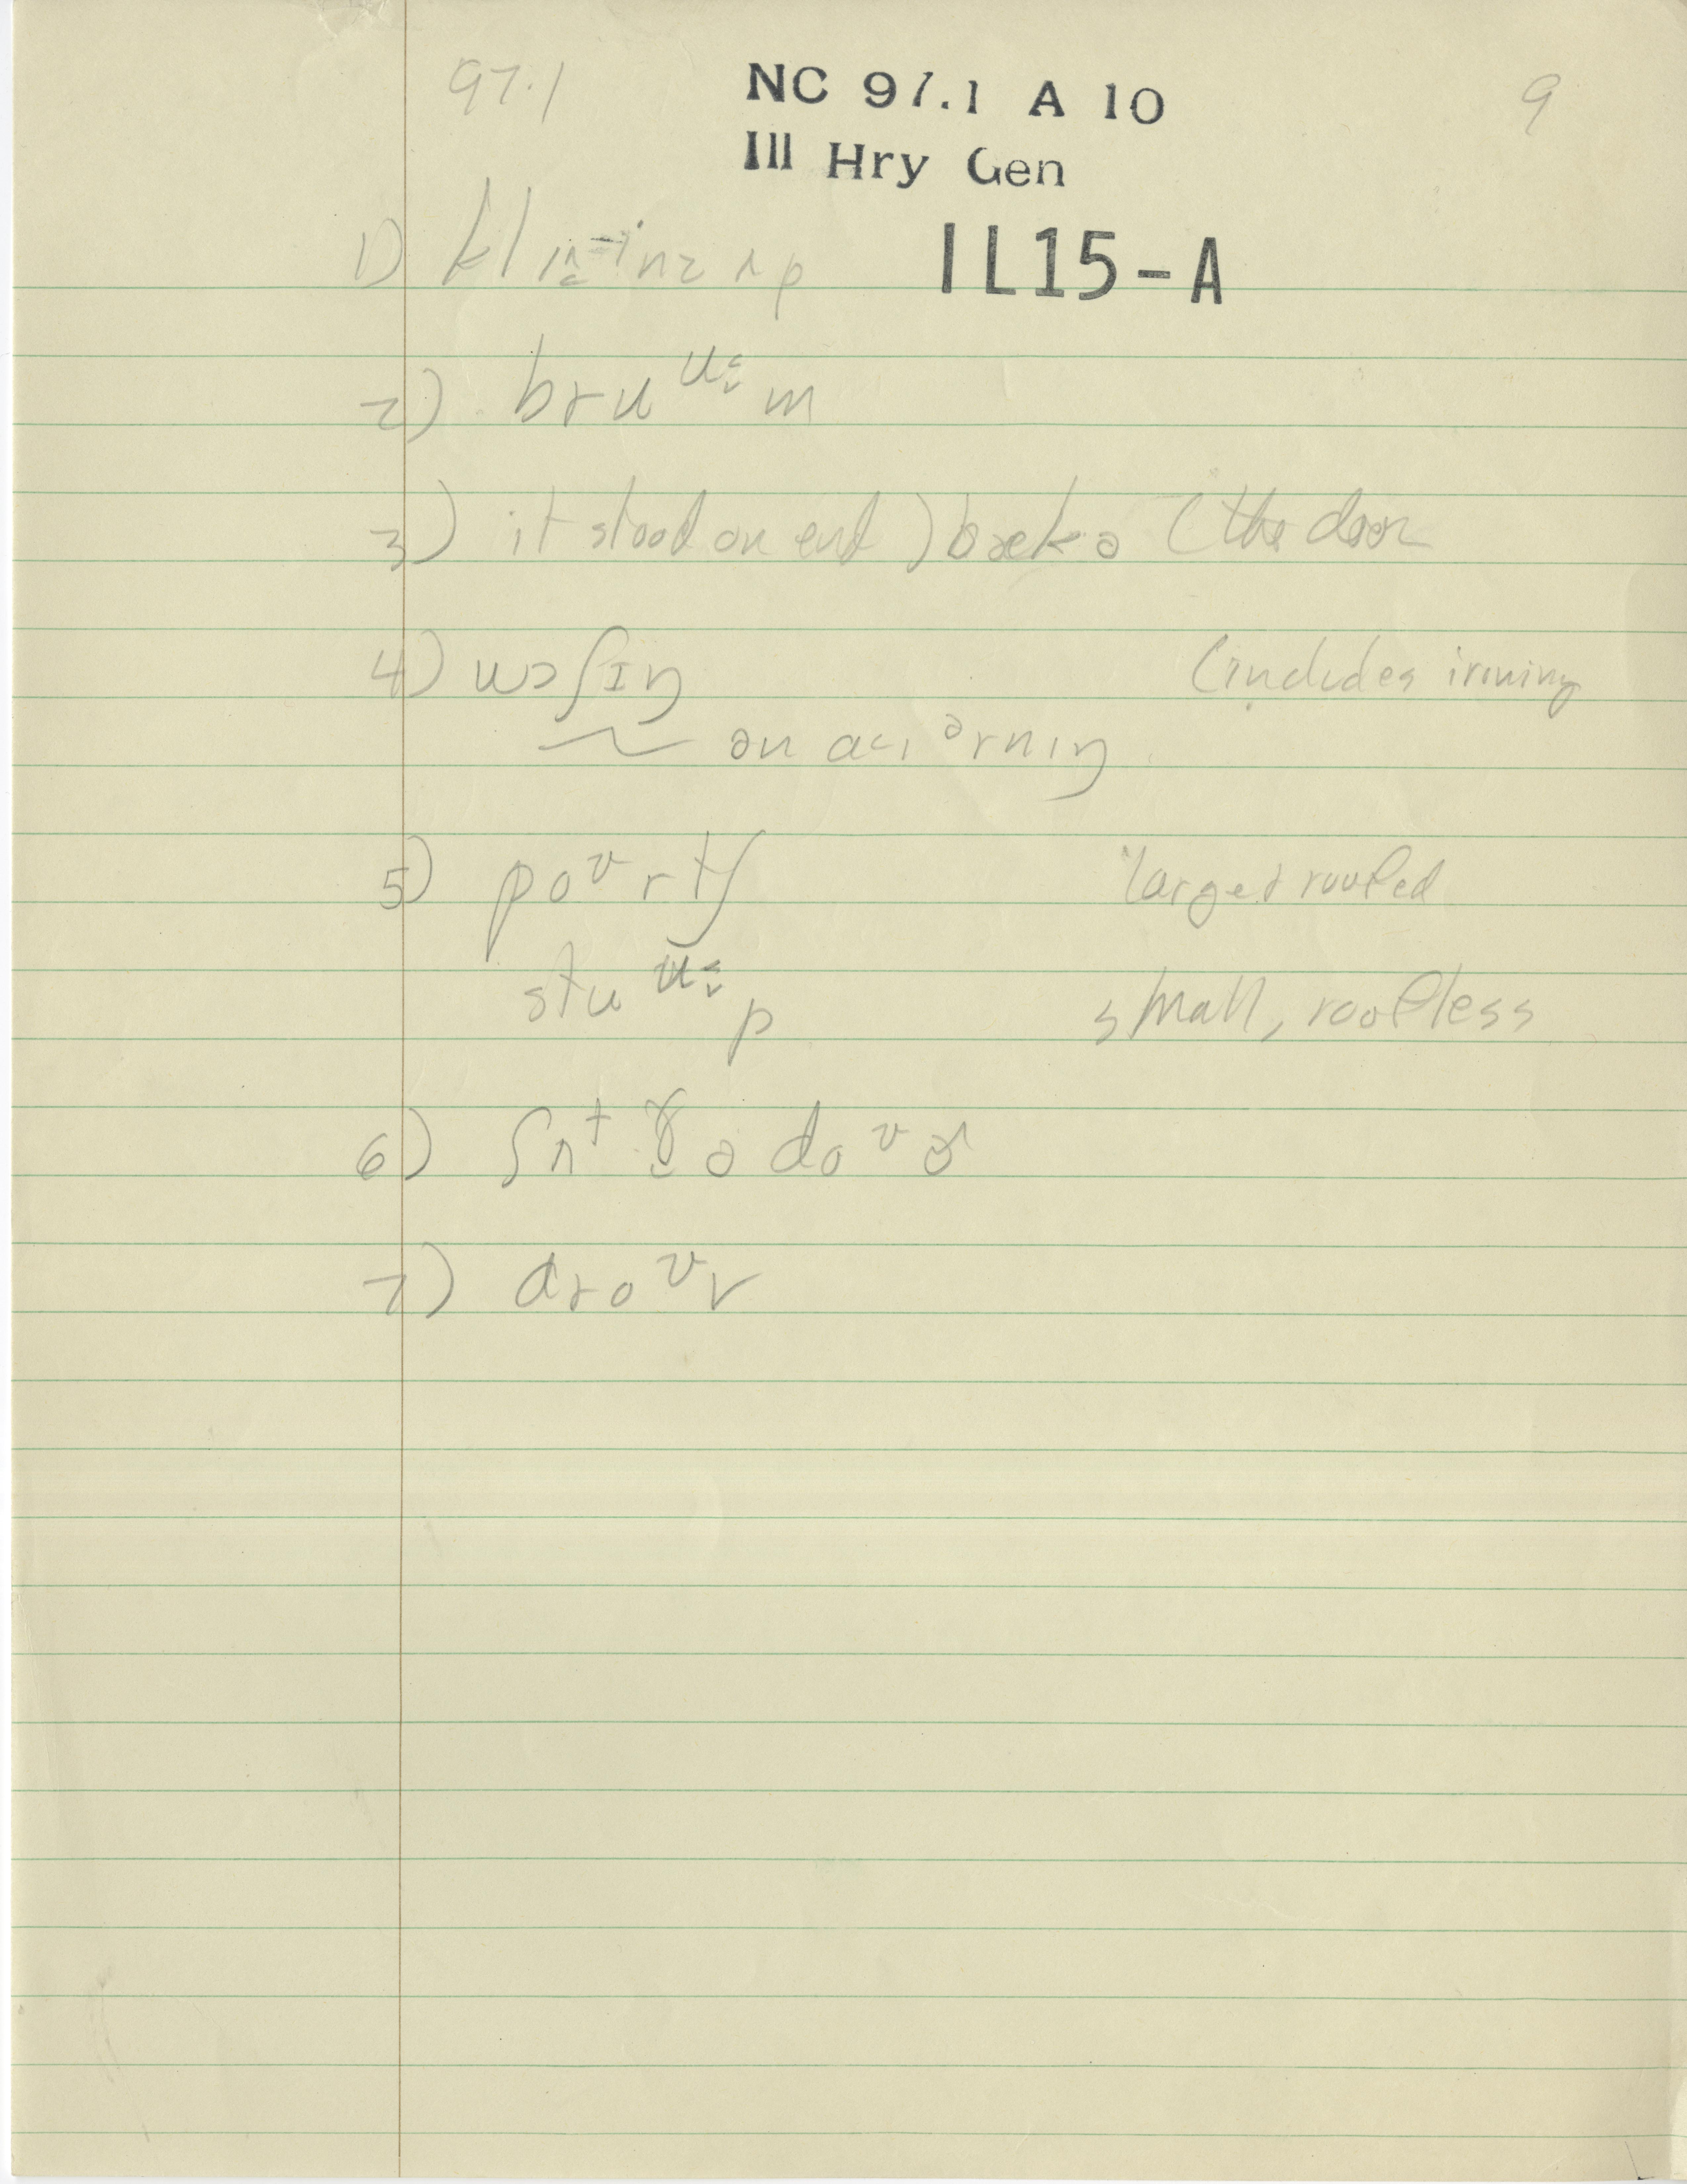 97.1 NC 97.1 A 10 9
Ill Hry Gen
IL15-A
1)
2) bru ᵘ˱ m
3) it stood on end ) bæk ə ( the door
4) wɔʃɪŋ (includes ironing
~ ən aɪ ᵊrnɪŋ
5) poᶹrtʃ larger roofed
stu ᵘ˱ p small, roofless
6) ʃʌᵗ ðə doᶹɚ
7) droᶹv